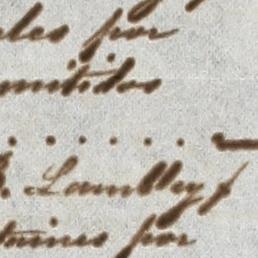 les por
mitidos
. . . . . .
S. Lambley
taines por